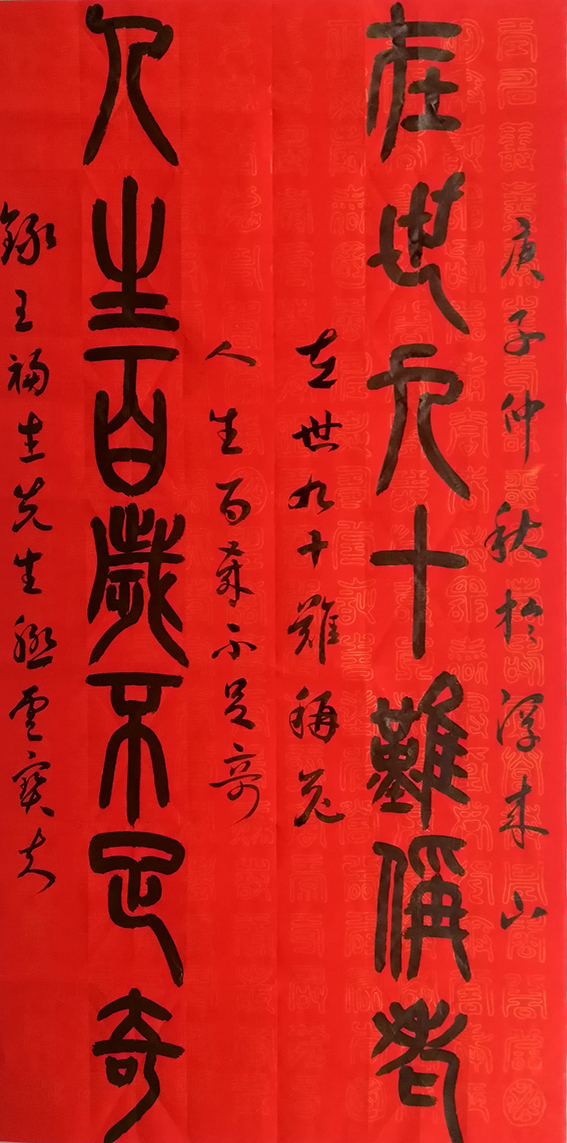 庚子仲秋於浮来山
在世九十難稱老
在世九十難稱老
人生百歲不足奇
人生百歲不足奇
錄王福先生聯雲寶夫